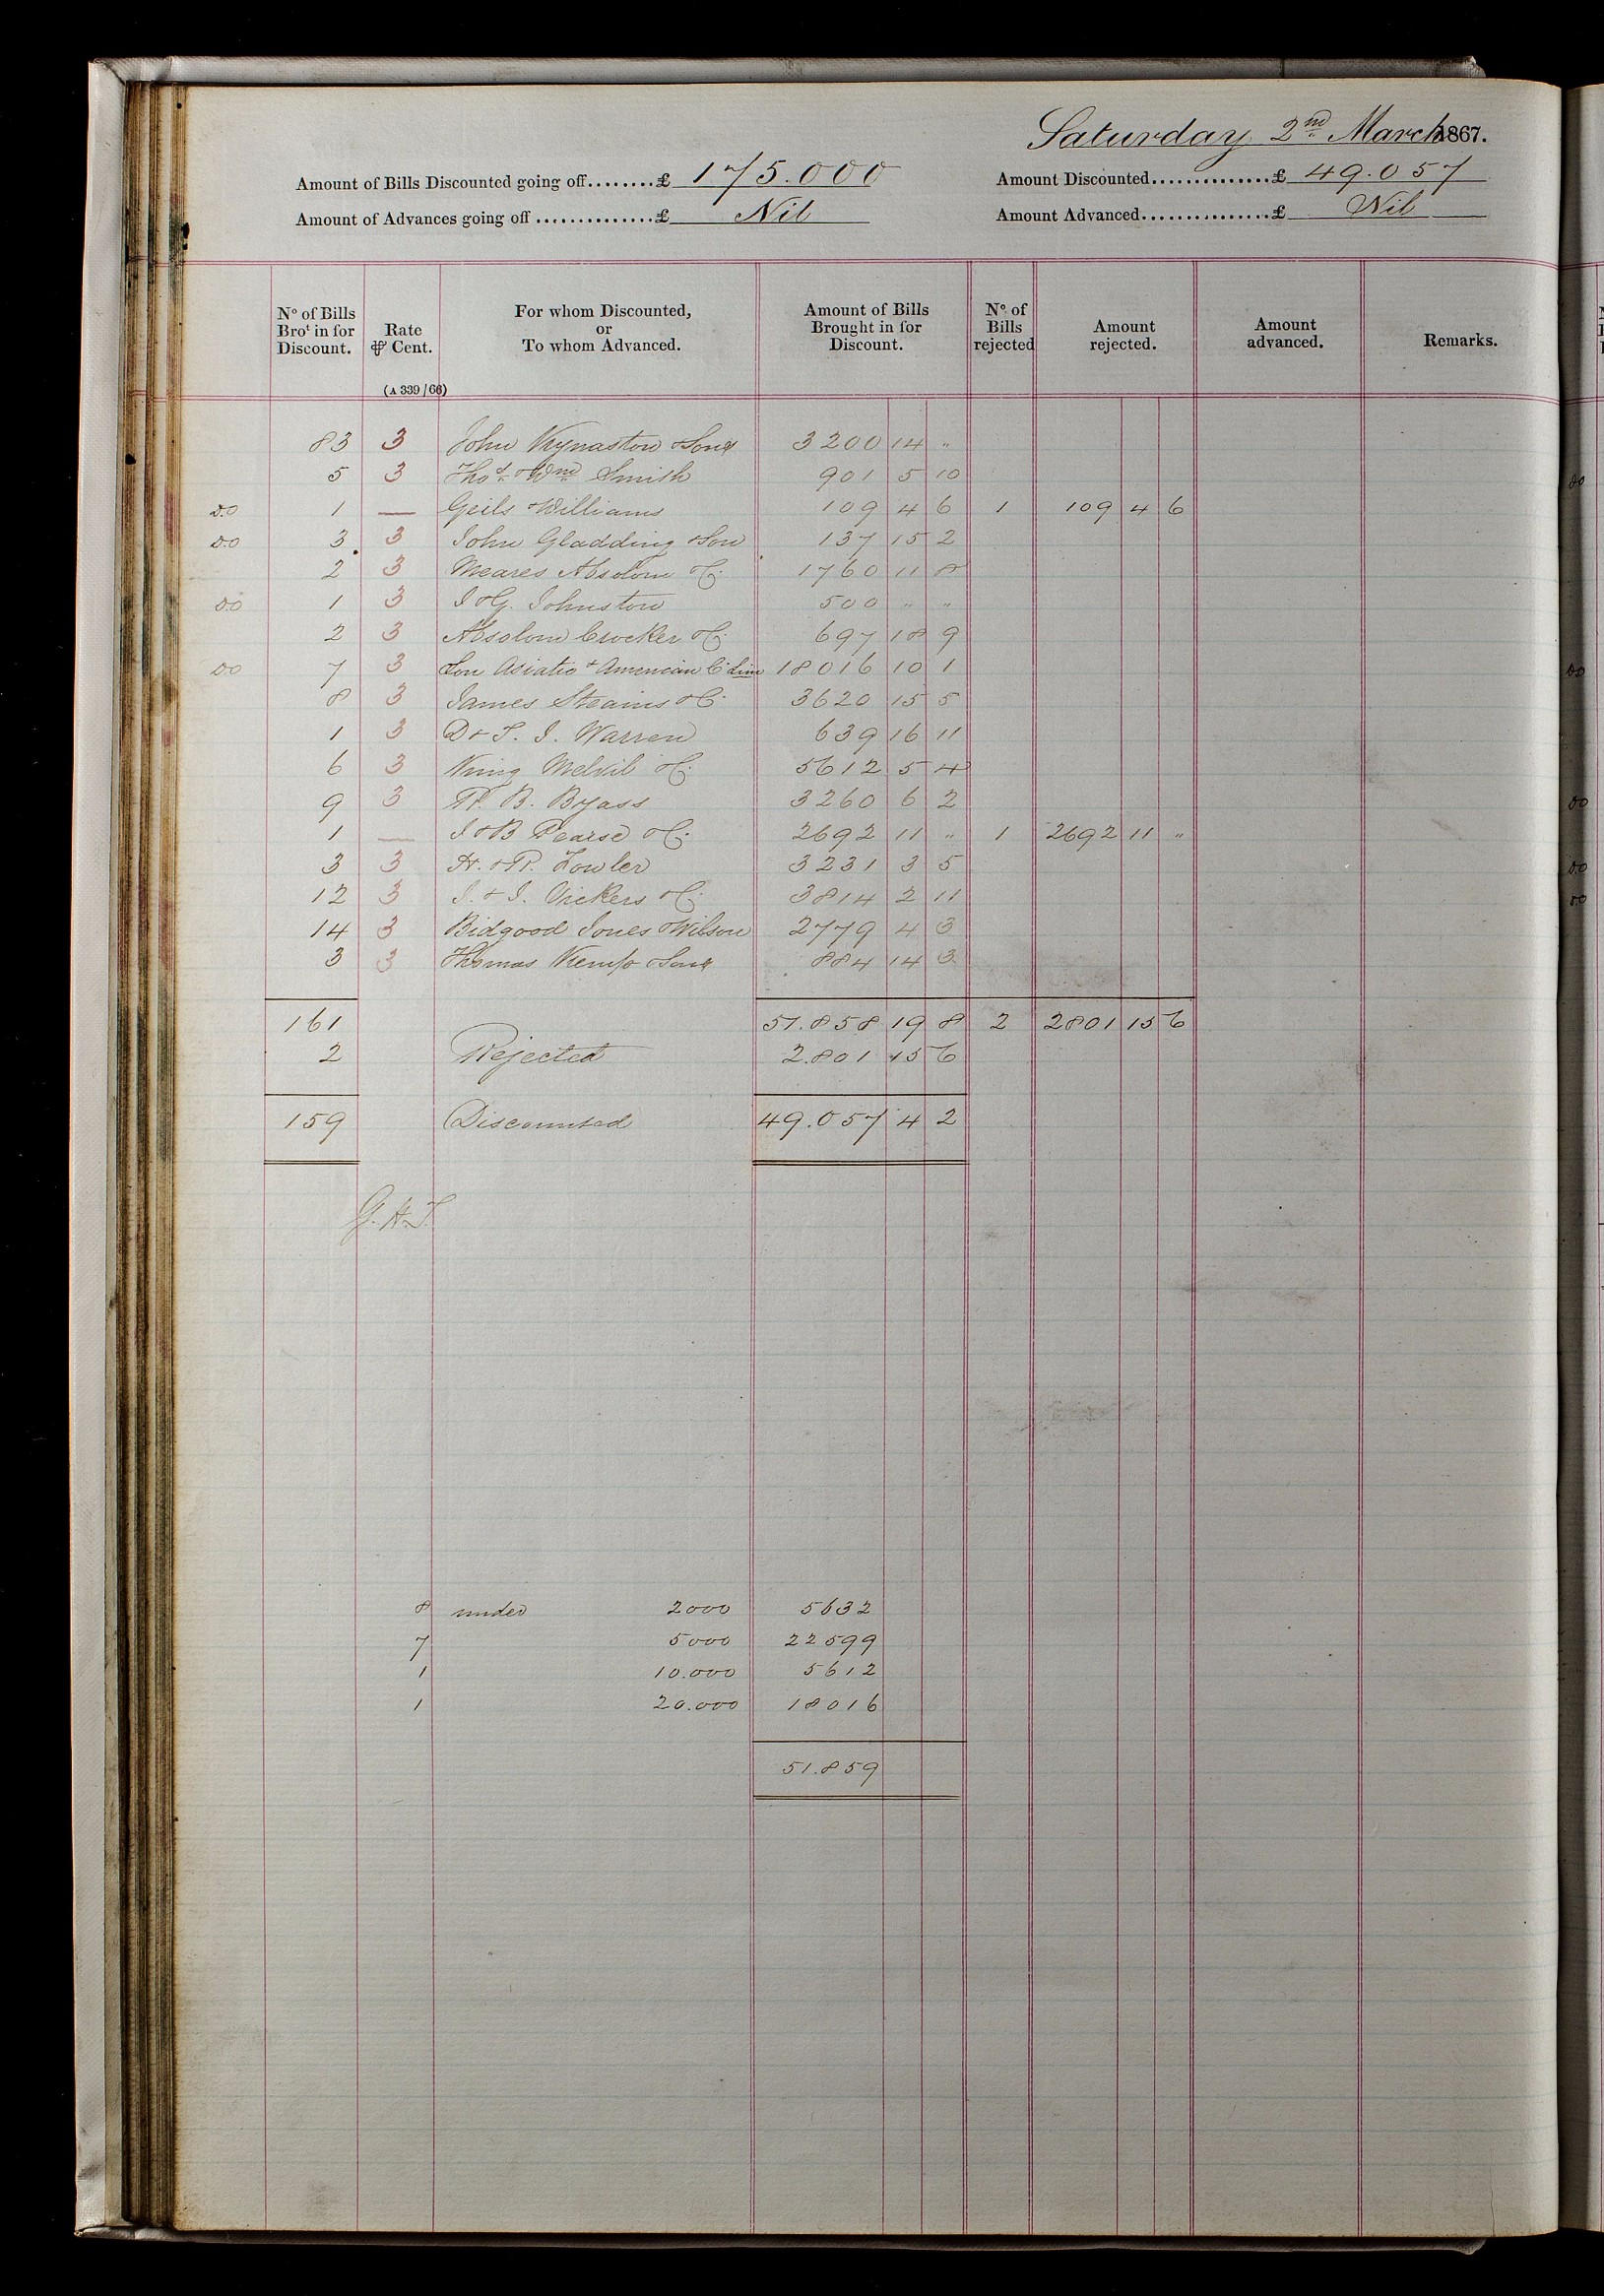 Saturday 2nd March 1867.
Amount of Bills Discounted going off........£ 175.000
Amount Discounted..............£ 49.057
Amount of Advances going off..............£ Nil
Amount Advanced...............£ Nil
No of Bills Brot in for Discount.
Rate ⅌ Cent.
For whom Discounted, or To whom Advanced.
Amount of Bills Brought in for Discount.
No of Bills rejected
Amount rejected.
Amount advanced.
Remarks.
(A 339/66)
83 3 John Kynaston & Sons 3200 14 "
5 3 Thos & Wm Smith 901 5 10
1 — Geils Williams 109 4 6 1 109 4 6
3 3 John Gladding & Son 137 15 2
2 3 Meares Absolom & Co 1760 11 8
1 3 J & G. Johnston 500 " "
2 3 Absolom Crocker & Co 697 18 9
7 3 Lon Asiatic & American Co Lim 18016 10 1
8 3 James Steains & Co 3620 15 5
1 3 D & T. J. Warren 639 16 11
6 3 King Melvil & Co 5612 5 4
9 3 R. B. Byass 3260 6 2
1 — J & B Pearse & Co 2692 11 " 1 2692 11 "
3 3 H. & R. Fowler 3231 3 5
12 3 J. & J. Vickers & Co 3814 2 11
14 3 Bidgood Jones & Wilson 2779 4 3
3 3 Thomas Kemp & Sons 884 14 3
161 51.858 19 8 2 2801 15 6
2 Rejected 2.801 15 6
159 Discounted 49.057 4 2
G.H.T.
8 under 2000 5632
7 5000 22599
1 10.000 5612
1 20.000 18016
51.859